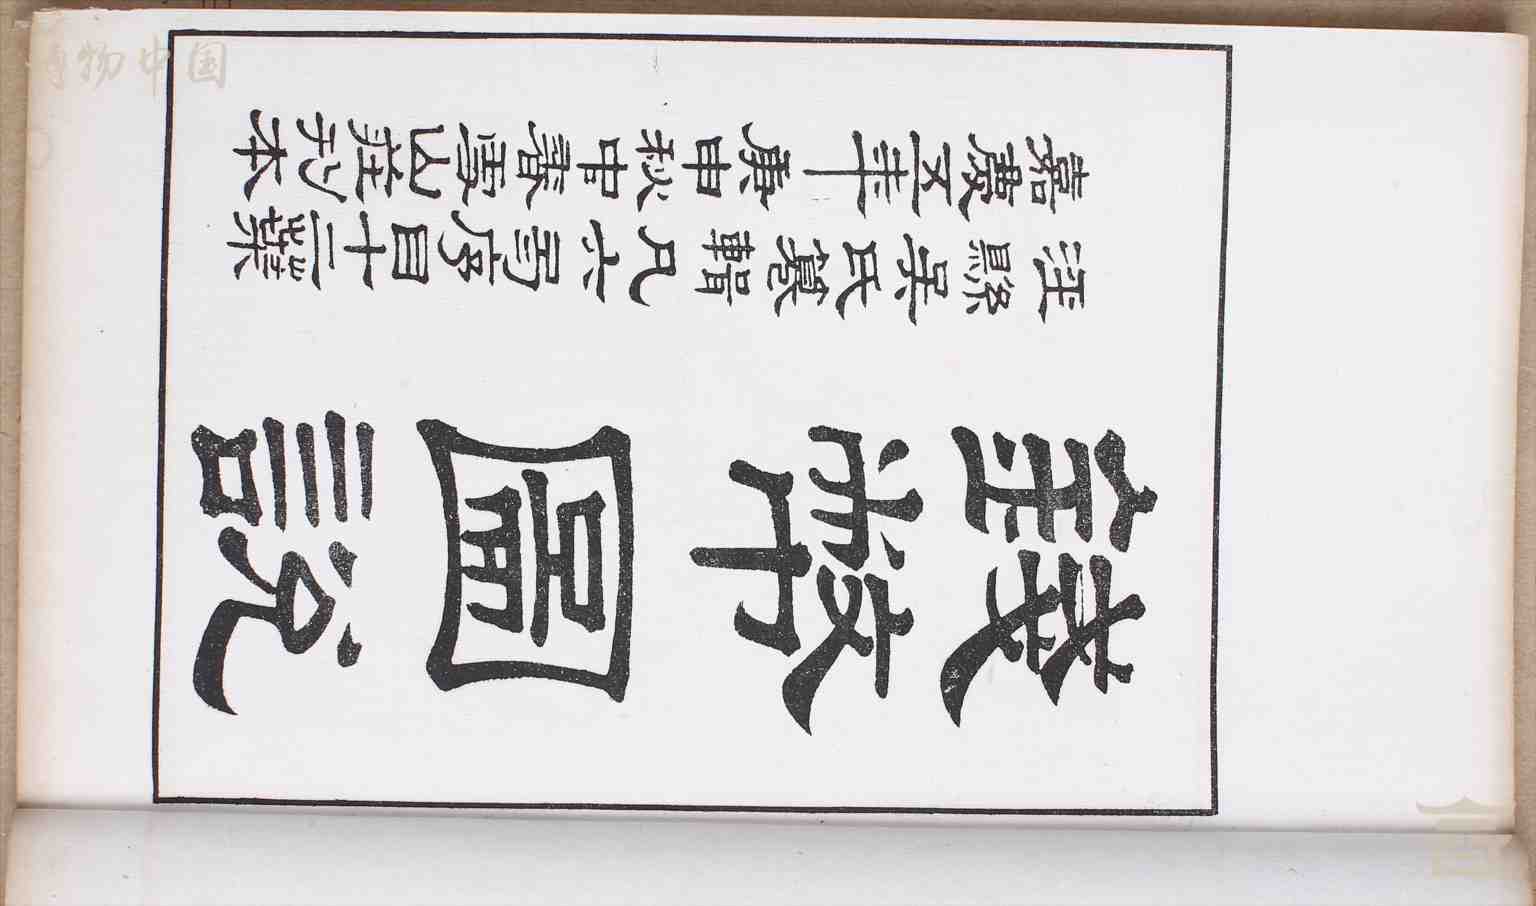 錢幣圖說
涇縣吳氏纂輯凡六弓序目十二葉
嘉慶五年庚申秋中香雪山莊刊本
博物中国